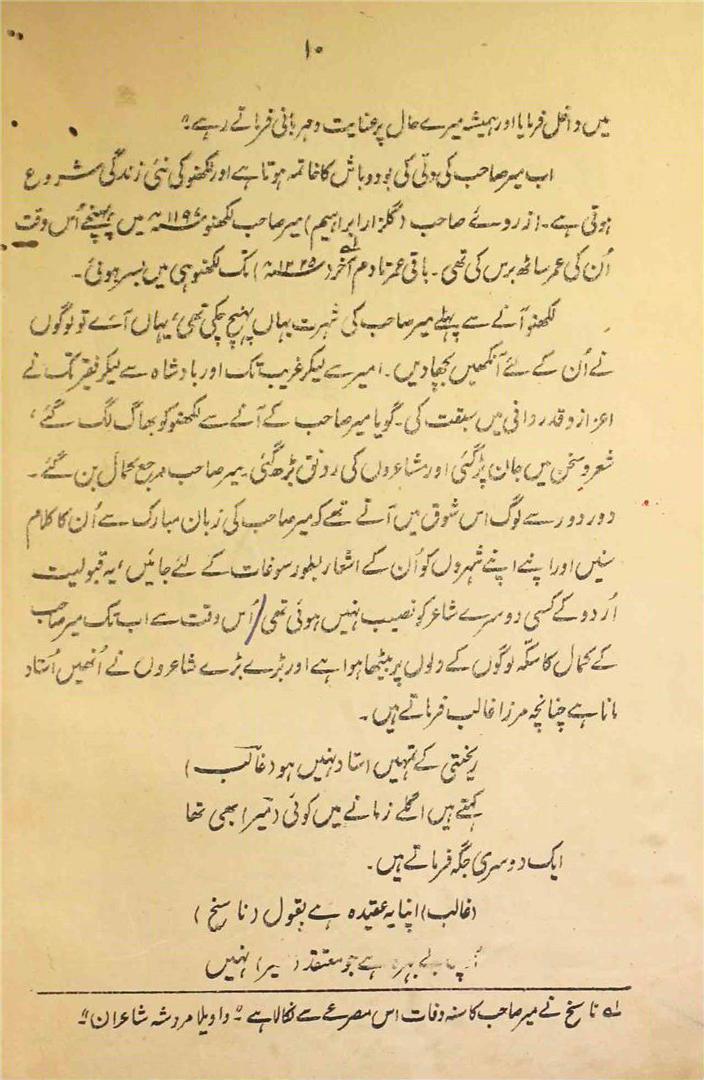 ۱۰
میں داخل فرمایا اور ہمیشہ میرے حال پر عنایت و مہربانی فرماتے رہے۔"
اب میر صاحب کی دلّی کی بود و باش کا خاتمہ ہوتا ہے اور لکھنؤ کی نئی زندگی شروع
ہوتی ہے۔ ازروئے صاحب (گلزار ابراہیم) میر صاحب لکھنؤ ۱۱۹۷ھ میں پہنچے اُس وقت
اُن کی عمر ساٹھ برس کی تھی۔ باقی عمر تا دم آخر (۱۲۲۵ھ) تک لکھنؤ ہی میں بسر ہوئی۔
لکھنؤ آنے سے پہلے میر صاحب کی شہرت یہاں پہنچ چکی تھی، یہاں آئے تو لوگوں
نے اُن کے لئے آنکھیں بچھا دیں۔ امیر سے لیکر غریب تک اور بادشاہ سے لیکر فقیر تک نے
اعزاز و قدردانی میں سبقت کی۔ گویا میر صاحب کے آنے سے لکھنؤ کو بھاگ لگ گئے،
شعر و سخن میں جان پڑ گئی اور مشاعروں کی رونق بڑھ گئی۔ میر صاحب مرجع کمال بن گئے۔
دور دور سے لوگ اس شوق میں آتے تھے کہ میر صاحب کی زبان مبارک سے اُن کا کلام
سنیں اور اپنے اپنے شہروں کو اُن کے اشعار بطور سوغات کے لئے جائیں، یہ قبولیت
اُردو کے کسی دوسرے شاعر کو نصیب نہیں ہوئی تھی/ اُس وقت سے اب تک میر صاحب
کے کمال کا سکّہ لوگوں کے دلوں پر بیٹھا ہوا ہے اور بڑے بڑے شاعروں نے انھیں اُستاد
مانا ہے چنانچہ مرزا غالب فرماتے ہیں۔
ریختی کے تمہیں استاد نہیں ہو (غالب)
کہتے ہیں اگلے زمانے میں کوئی (میر) بھی تھا
ایک دوسری جگہ فرماتے ہیں۔
(غالب) اپنا یہ عقیدہ ہے بقول (ناسخ)
آپ بے بہرہ ہے جو معتقد (میر) نہیں
۱ے ناسخ نے میر صاحب کا سنہ وفات اس مصرعے سے نکالا ہے۔ "واویلا مرد شہ شاعران"۔